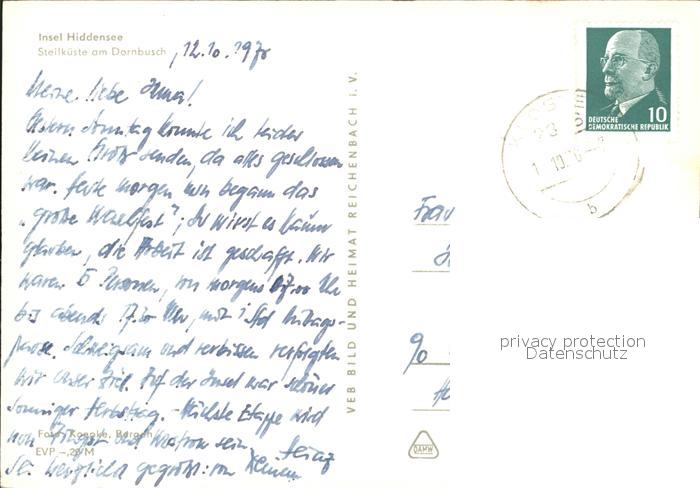 Insel Hiddensee
Steilküste am Dornbusch
12.10.1970
Meine liebe Irma!
Gestern Sonntag konnte ich leider
keinen Gruß senden, da alles geschlossen
war. Heute morgen nun begann das
"große Waschfest"; Du wirst es kaum
glauben, die Arbeit ist geschafft. Wir
waren 5 Personen, von morgens 07.00 Uhr
bis abends 17.30 Uhr, mit 1 Std Mittags-
pause. Schweigsam und verbissen verfolgten
wir unser Ziel. Auf der Insel war schöner
sonniger Herbsttag. - Nächste Etappe wird
nun und sein
Sei herzlichst gegrüßt von Deinem
Heinz
Foto: Koepke, Bergen
EVP -,20/M
VEB BILD UND HEIMAT REICHENBACH I. V.
DEUTSCHE
DEMOKRATISCHE REPUBLIK
10
23
Frau
90
privacy protection
Datenschutz
DAMW